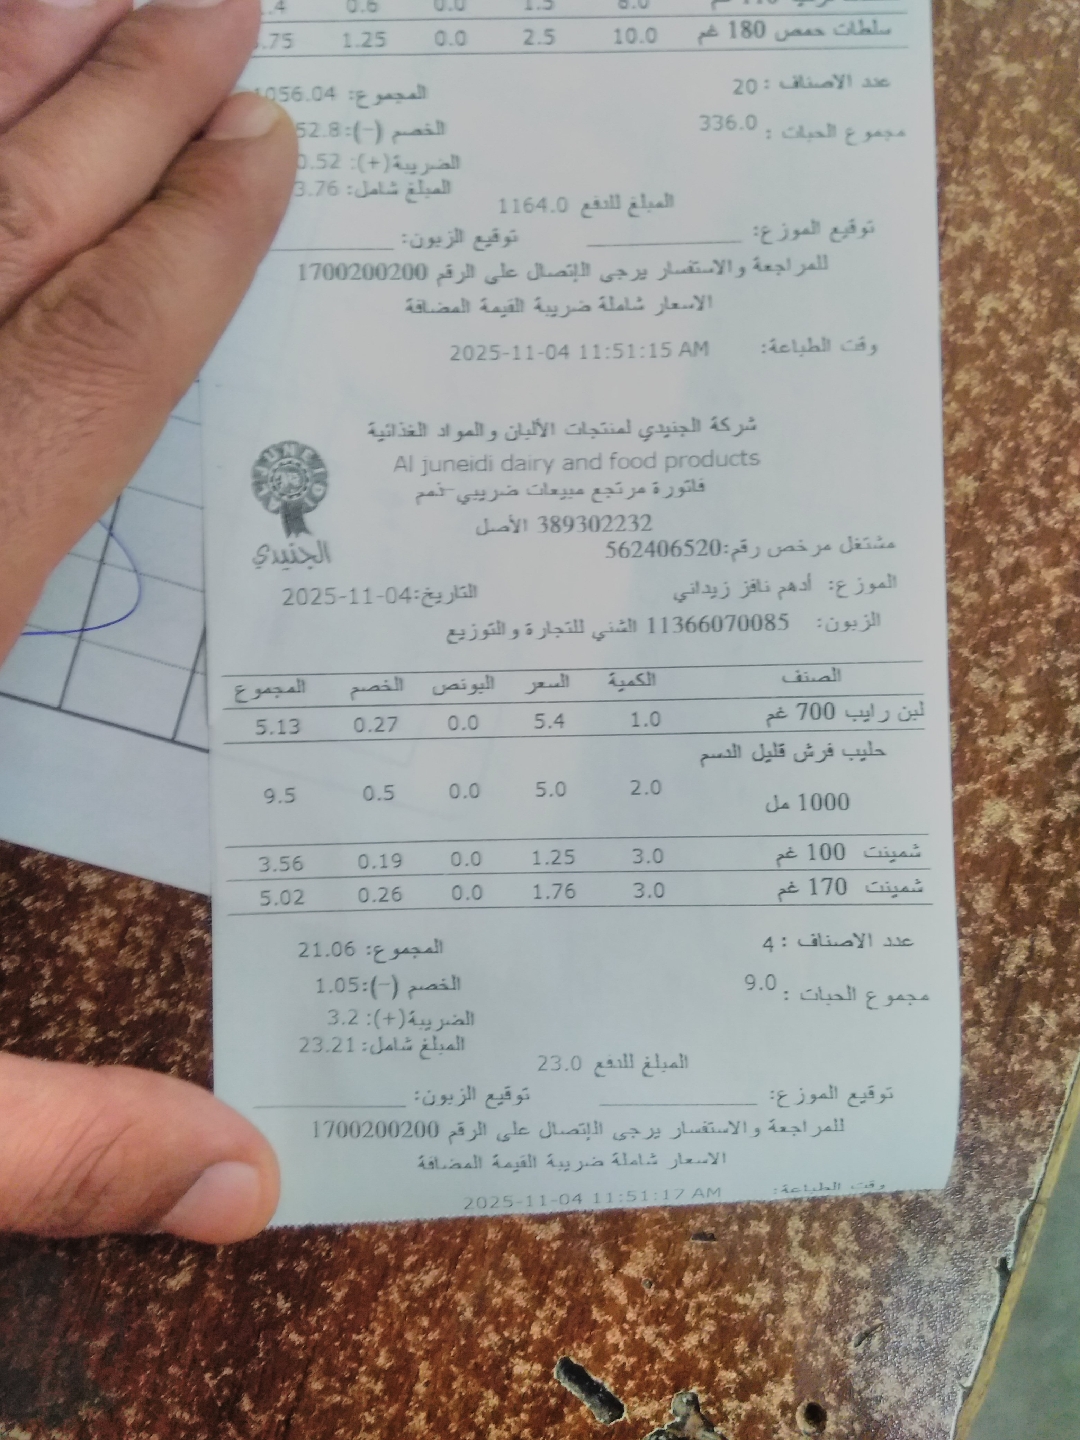 .4 0.6 0.0 1.5 8.0 110 غم
سلطات حمص 180 غم 10.0 2.5 0.0 1.25 .75
عدد الاصناف : 20 المجموع: 1056.04
مجموع الحبات : 336.0 الخصم (-):52.8
الضريبة(+): 0.52
المبلغ شامل: 3.76
المبلغ للدفع 1164.0
توقيع الموزع: ____________ توقيع الزبون: ____________
للمراجعة والاستفسار يرجى الإتصال على الرقم 1700200200
الاسعار شاملة ضريبة القيمة المضافة
وقت الطباعة: 2025-11-04 11:51:15 AM
شركة الجنيدي لمنتجات الألبان والمواد الغذائية
Al juneidi dairy and food products
JUNEIDI
الجنيدي
فاتورة مرتجع مبيعات ضريبي-ذمم
389302232 الأصل
مشتغل مرخص رقم:562406520
الموزع: أدهم نافز زيداني التاريخ:2025-11-04
الزبون: 11366070085 الشني للتجارة والتوزيع
الصنف الكمية السعر البونص الخصم المجموع
لبن رايب 700 غم 1.0 5.4 0.0 0.27 5.13
حليب فرش قليل الدسم
1000 مل 2.0 5.0 0.0 0.5 9.5
شمينت 100 غم 3.0 1.25 0.0 0.19 3.56
شمينت 170 غم 3.0 1.76 0.0 0.26 5.02
عدد الاصناف : 4 المجموع: 21.06
مجموع الحبات : 9.0 الخصم (-):1.05
الضريبة(+): 3.2
المبلغ شامل: 23.21
المبلغ للدفع 23.0
توقيع الموزع: ____________ توقيع الزبون: ____________
للمراجعة والاستفسار يرجى الإتصال على الرقم 1700200200
الاسعار شاملة ضريبة القيمة المضافة
وقت الطباعة: 2025-11-04 11:51:17 AM